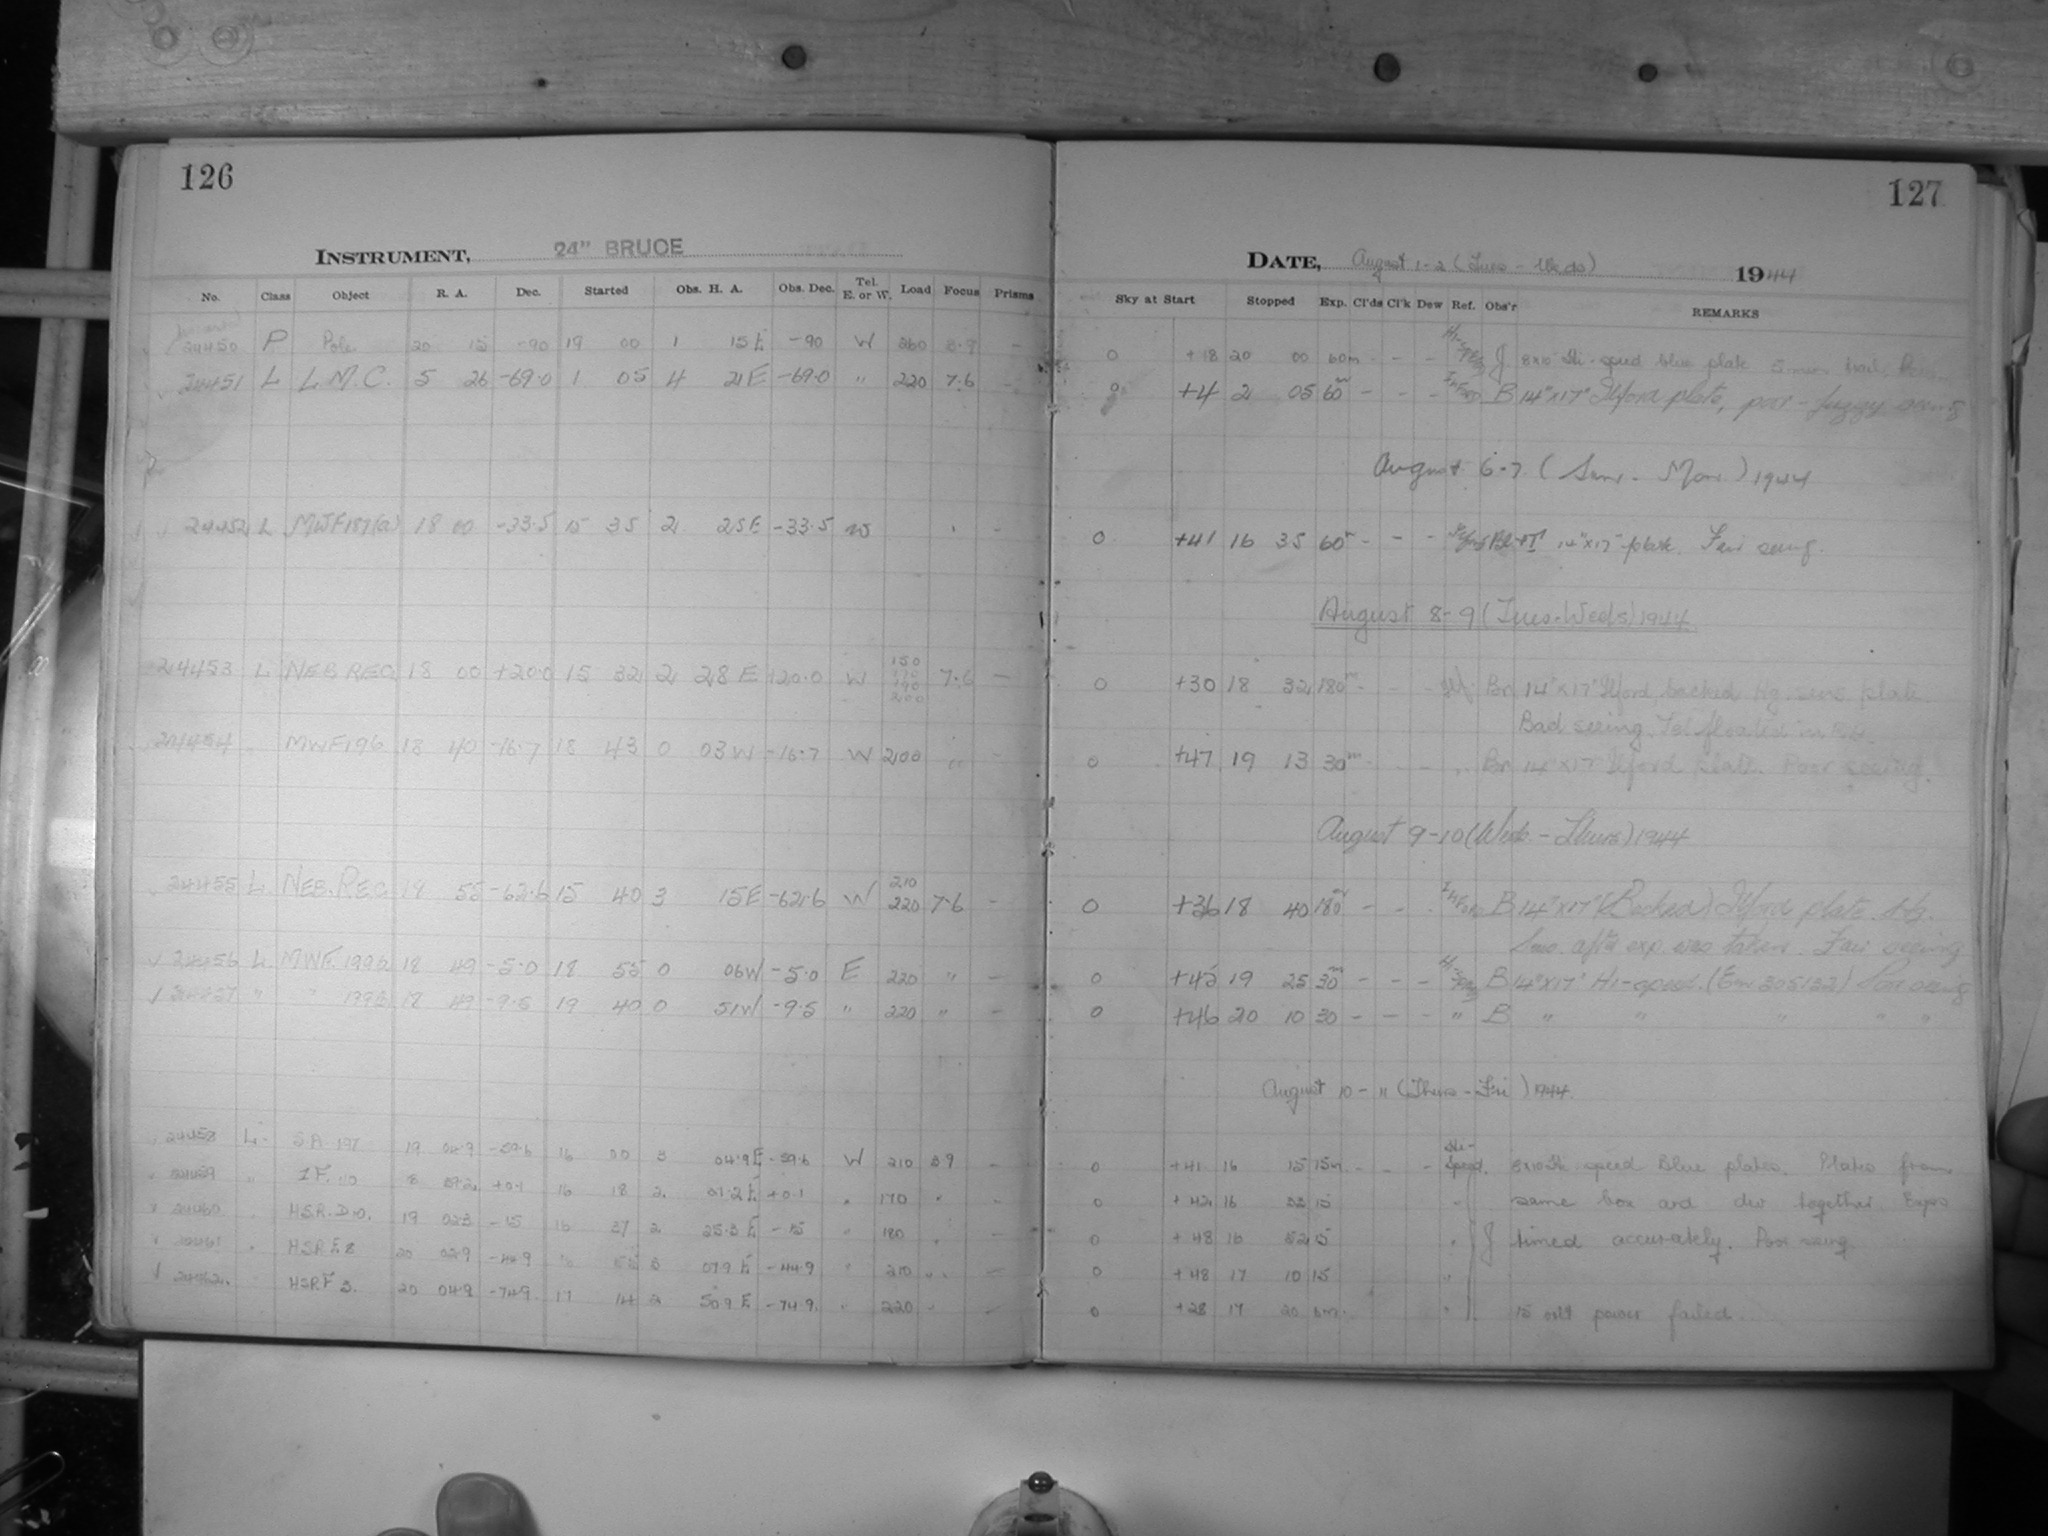 126
INSTRUMENT, 24" BRUCE
No. Class Object R. A. Dec. Started Obs. H. A. Obs. Dec. Tel. E. or W. Load Focus Prisms
24450 P Pole 20 15 -90 19 00 1 15 E -90 W 260 8.9 -
24451 L L.M.C. 5 26 -69.0 1 05 4 21 E -69.0 " 220 7.6 -
24452 L MWF187(a) 18 00 -33.5 15 35 2 25 E -33.5 W -
24453 L NEB REG 18 00 +20.0 15 32 2 28 E +20.0 W 150 170 190 200 7.6 -
24454 " MWF196 18 40 -16.7 18 43 0 03 W -16.7 W 2100 " -
24455 L NEB. REG 18 55 -62.6 15 40 3 15 E -62.6 W 210 220 7.6 -
24456 L MWF. 199a 18 49 -5.0 18 55 0 06 W -5.0 E 220 " -
24457 " " 199b 18 49 -9.5 19 40 0 51 W -9.5 " 220 " -
24458 L S.A. 197 19 04.9 -59.6 16 00 3 04.9 E -59.6 W 210 8.9 -
24459 " 110 +0.1 16 18 2 07.2 E +0.1 " 170 " -
24460 " HSR. D10. 19 02.3 -15 16 37 2 25.3 E -15 " 180 " -
24461 " HSR E8 20 02.9 -44.9 07.9 E -44.9 " 210 " -
24462 " HSR F3. 20 04.9 -74.9 17 14 2 50.9 E -74.9 " 220 " -
127
DATE, August 1-2 (Tues - Weds) 1944
Sky at Start Stopped Exp. Cl'ds Cl'k Dew Ref. Obs'r REMARKS
0 +18 20 00 60m - - - Hi-Speed J 8x10 Hi-speed blue plate 5 min trail.
0 +4 2 05 60m - - - Ilford B 14"x17" Ilford plate, poor - fuzzy seeing
August 6-7 (Sun. - Mon.) 1944
0 +41 16 35 60m - - - Ilford 14"x17" plate. Fair seeing.
August 8-9 (Tues-Weds) 1944
0 +30 18 32 180m - - - Ilf Bn 14"x17" Ilford, backed Hg. sens. plate
Bad seeing. Tel. floated in R.A.
0 +47 19 13 30m - - - " Bn 14"x17" Ilford plate. Poor seeing.
August 9-10 (Weds - Thurs) 1944
0 +36 18 40 180m - - - Ilford B 14"x17" (Backed) Ilford plate. Hg.
Sens. after exp. was taken. Fair seeing
0 +45 19 25 30m - - - Hi-Speed B 14"x17" Hi-speed. (Em 305132) Poor seeing
0 +46 20 10 30 - - - " B " " " " "
August 10-11 (Thurs - Fri) 1944
0 +41 16 15 15m - - - Hi-Speed. 8x10 Hi speed Blue plates. Plates from
0 +42 16 33 15 " same box and dev together. Exps
0 +48 16 52 15 " J timed accurately. Poor seeing
0 +48 17 10 15 "
0 +28 17 20 6m. " 15 volt power failed.